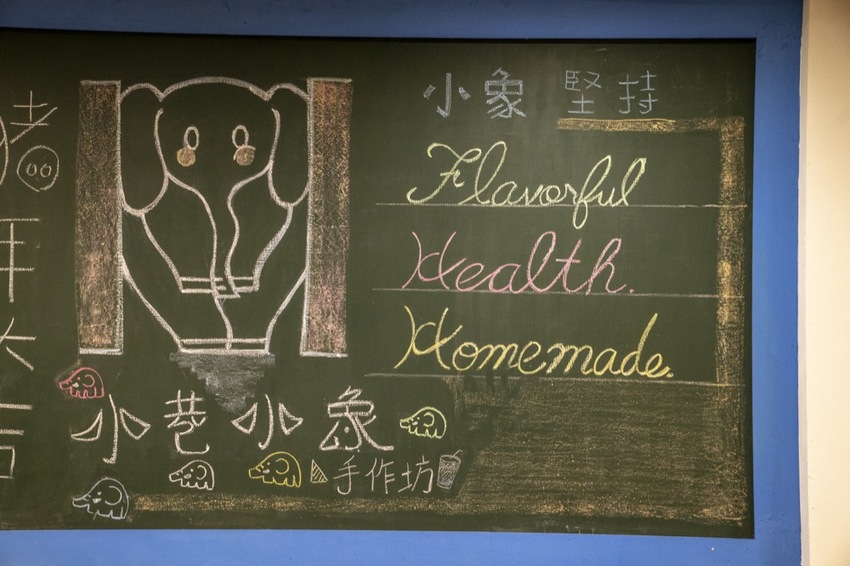 豬
小象 堅持
Flavorful
Health.
Homemade.
小巷小象
手作坊